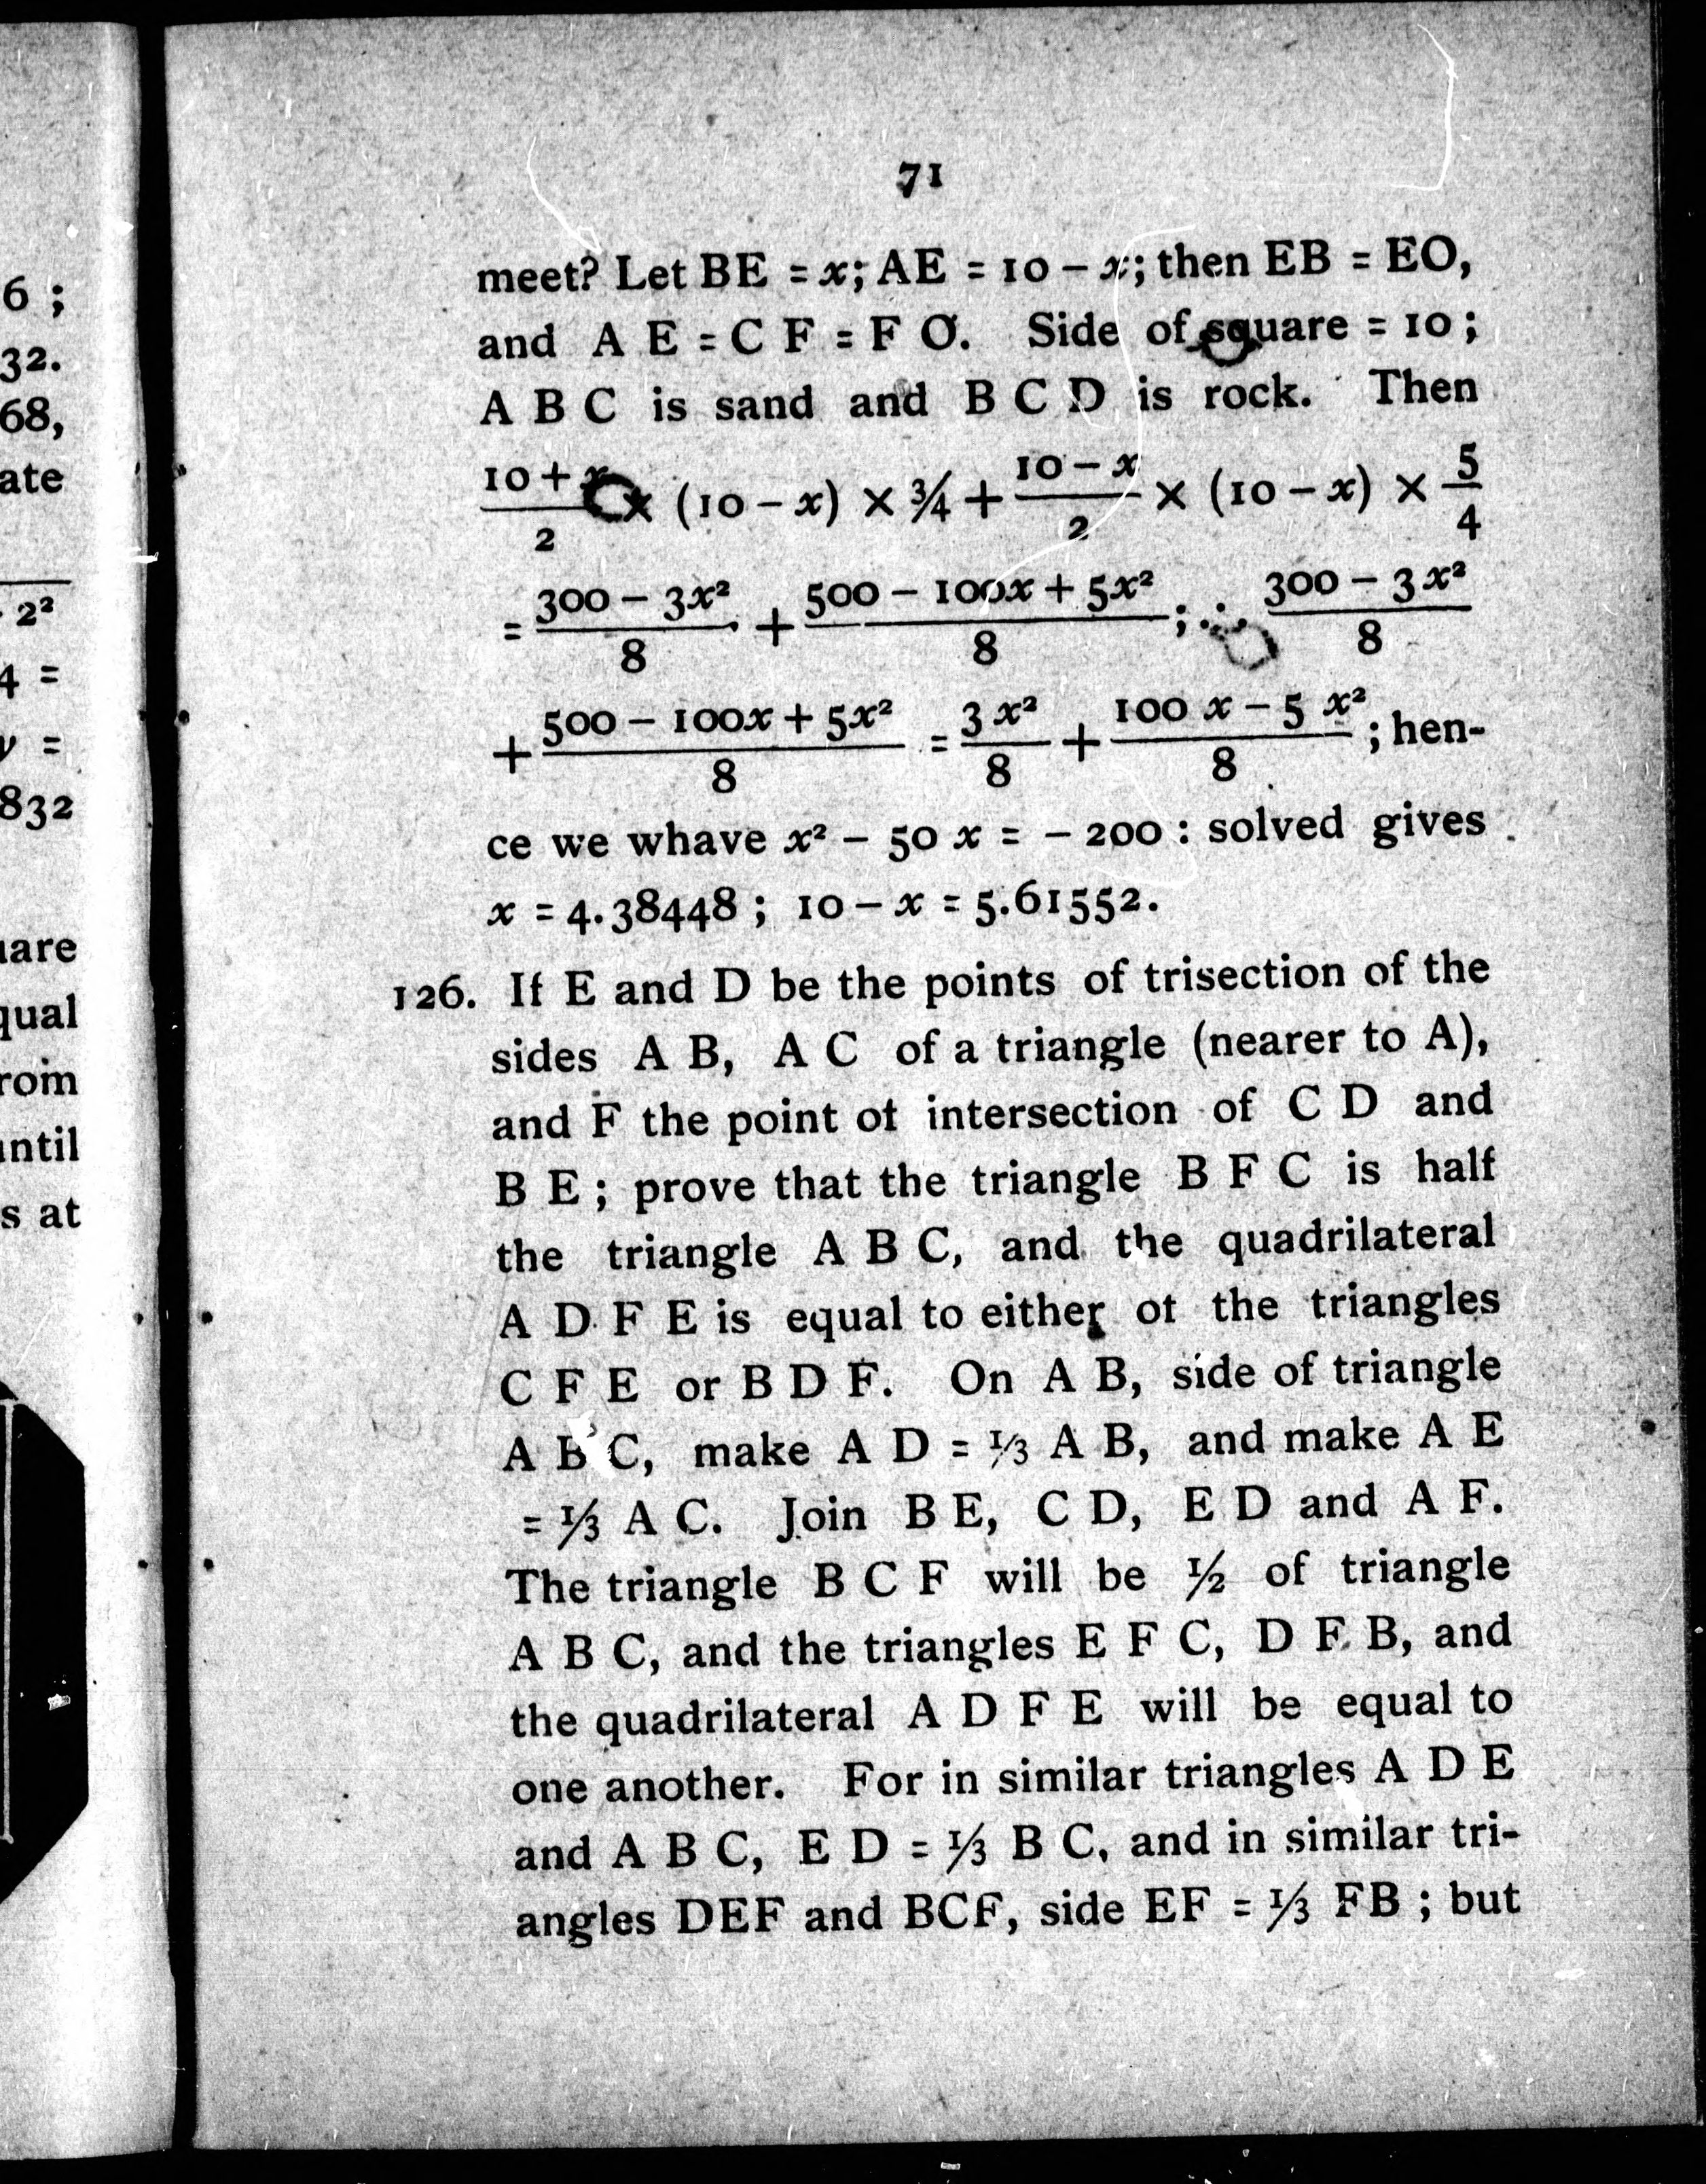 6 ;
32.
68,
ate
2²
4 =
832
qual
until
s at
71
meet? Let BE = x; AE = 10 − x; then EB = EO,
and A E = C F = F O. Side of square = 10 ;
A B C is sand and B C D is rock. Then
(10 + x)/2 × (10 − x) × ¾ + (10 − x)/2 × (10 − x) × 5/4
= (300 − 3x²)/8 + (500 − 100x + 5x²)/8 ; ∴ (300 − 3x²)/8
+ (500 − 100x + 5x²)/8 = 3 x²/8 + (100 x − 5 x²)/8 ; hen-
ce we whave x² − 50 x = − 200 : solved gives
x = 4.38448 ; 10 − x = 5.61552.
126. If E and D be the points of trisection of the
sides A B, A C of a triangle (nearer to A),
and F the point ot intersection of C D and
B E ; prove that the triangle B F C is half
the triangle A B C, and the quadrilateral
A D F E is equal to either ot the triangles
C F E or B D F. On A B, side of triangle
A B C, make A D = ⅓ A B, and make A E
= ⅓ A C. Join B E, C D, E D and A F.
The triangle B C F will be ½ of triangle
A B C, and the triangles E F C, D F B, and
the quadrilateral A D F E will be equal to
one another. For in similar triangles A D E
and A B C, E D = ⅓ B C, and in similar tri-
angles DEF and BCF, side EF = ⅓ FB ; but